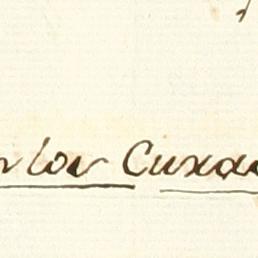 n los Cuxa